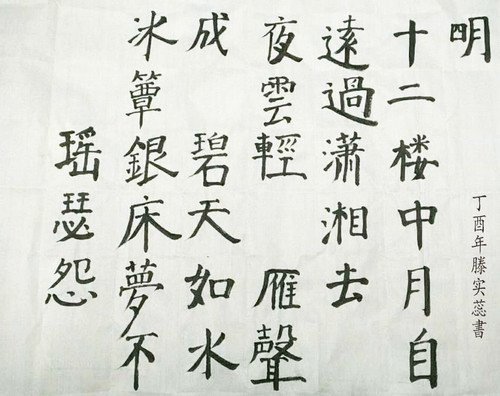 瑶瑟怨
冰簟銀床夢不
成 碧天如水
夜雲輕 雁聲
遠過潇湘去
十二楼中月自
明
丁酉年滕实蕊書